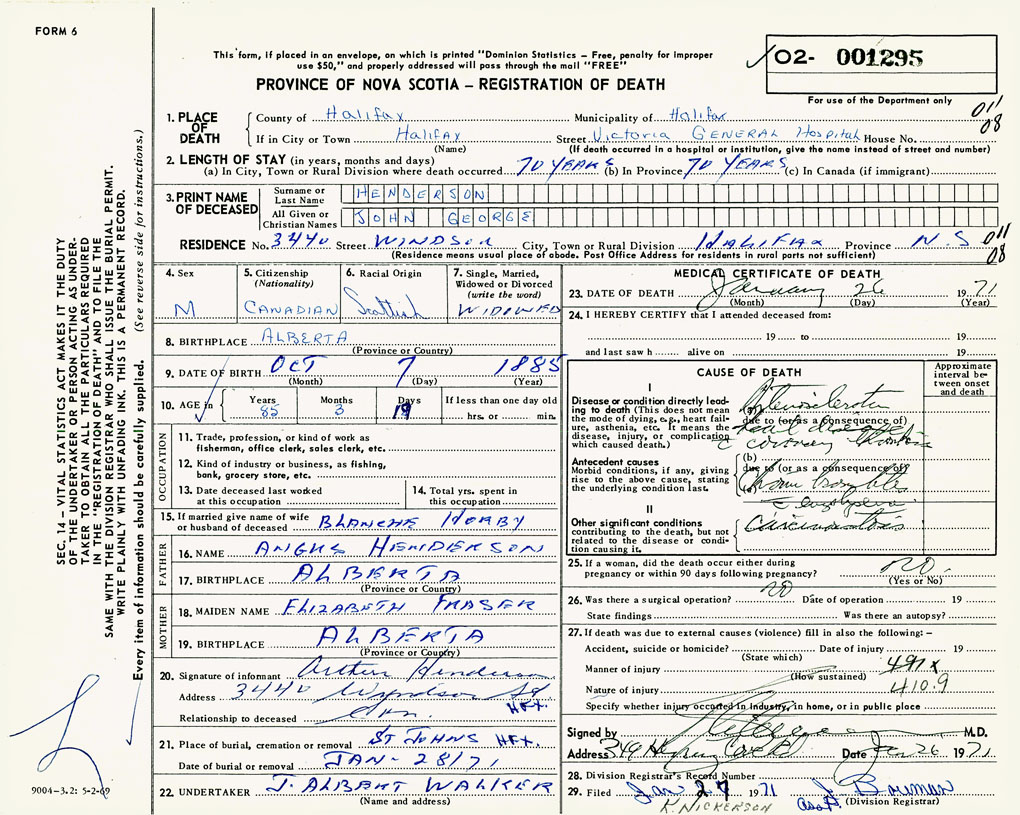 FORM 6
This form, if placed in an envelope, on which is printed "Dominion Statistics – Free, penalty for improper
use $50," and properly addressed will pass through the mail "FREE"
PROVINCE OF NOVA SCOTIA – REGISTRATION OF DEATH
02- 001295
For use of the Department only
011
08
1. PLACE OF DEATH
County of Halifax Municipality of Halifax
If in City or Town Halifax Street Victoria GENERAL Hospital House No.
(Name) (If death occurred in a hospital or institution, give the name instead of street and number)
2. LENGTH OF STAY (in years, months and days)
(a) In City, Town or Rural Division where death occurred 70 YEARS (b) In Province 70 YEARS (c) In Canada (if immigrant)
3. PRINT NAME OF DECEASED
Surname or Last Name HENDERSON
All Given or Christian Names JOHN GEORGE
RESIDENCE No. 3440 Street WINDSOR City, Town or Rural Division HALIFAX Province N.S
011
08
(Residence means usual place of abode. Post Office Address for residents in rural parts not sufficient)
4. Sex
M
5. Citizenship (Nationality)
CANADIAN
6. Racial Origin
Scottish
7. Single, Married, Widowed or Divorced (write the word)
WIDOWED
8. BIRTHPLACE ALBERTA
(Province or Country)
9. DATE OF BIRTH OCT 7 1885
(Month) (Day) (Year)
10. AGE in
Years 85
Months 3
Days 19
If less than one day old
hrs. or min.
OCCUPATION
11. Trade, profession, or kind of work as
fisherman, office clerk, sales clerk, etc.
12. Kind of industry or business, as fishing,
bank, grocery store, etc.
13. Date deceased last worked
at this occupation
14. Total yrs. spent in
this occupation
15. If married give name of wife
or husband of deceased BLANCHE HORBY
FATHER
16. NAME ANGUS HENDERSON
17. BIRTHPLACE ALBERTA
(Province or Country)
MOTHER
18. MAIDEN NAME ELIZABETH FRASER
19. BIRTHPLACE ALBERTA
(Province or Country)
20. Signature of informant Arthur Henderson
Address 3440 Windsor St
HFX.
Relationship to deceased Son.
21. Place of burial, cremation or removal ST JOHNS HFX.
Date of burial or removal JAN - 28/71
22. UNDERTAKER J. ALBERT WALKER
(Name and address)
MEDICAL CERTIFICATE OF DEATH
23. DATE OF DEATH January 26 1971
(Month) (Day) (Year)
24. I HEREBY CERTIFY that I attended deceased from:
19 to 19
and last saw h alive on 19
CAUSE OF DEATH
Approximate interval between onset and death
I
Disease or condition directly lead-
ing to death (This does not mean
the mode of dying, e.g., heart fail-
ure, asthenia, etc. It means the
disease, injury, or complication
which caused death.)
(a)
due to (or as a consequence of)
heart disease
coronary
Antecedent causes
Morbid conditions, if any, giving
rise to the above cause, stating
the underlying condition last.
(b)
due to (or as a consequence of)
II
Other significant conditions
contributing to the death, but not
related to the disease or condi-
tion causing it.
Carcinomatosis
25. If a woman, did the death occur either during
pregnancy or within 90 days following pregnancy? no.
(Yes or No)
26. Was there a surgical operation? no Date of operation 19
State findings Was there an autopsy?
27. If death was due to external causes (violence) fill in also the following: –
Accident, suicide or homicide? Date of injury 19
(State which)
Manner of injury 491x
(How sustained)
Nature of injury 410.9
Specify whether injury occurred in industry, in home, or in public place
Signed by M.D.
Address 349 Date Jan 26 1971
28. Division Registrar's Record Number
29. Filed Jan 27 1971 J. Bowman
K. NICKERSON
(Division Registrar)
SEC. 14 – VITAL STATISTICS ACT MAKES IT THE DUTY
OF THE UNDERTAKER OR PERSON ACTING AS UNDER-
TAKER TO OBTAIN ALL THE PARTICULARS REQUIRED
IN THE "REGISTRATION OF DEATH" AND TO FILE THE
SAME WITH THE DIVISION REGISTRAR WHO SHALL ISSUE THE BURIAL PERMIT.
WRITE PLAINLY WITH UNFADING INK. THIS IS A PERMANENT RECORD.
Every item of information should be carefully supplied. (See reverse side for instructions.)
9004-3.2: 5-2-69